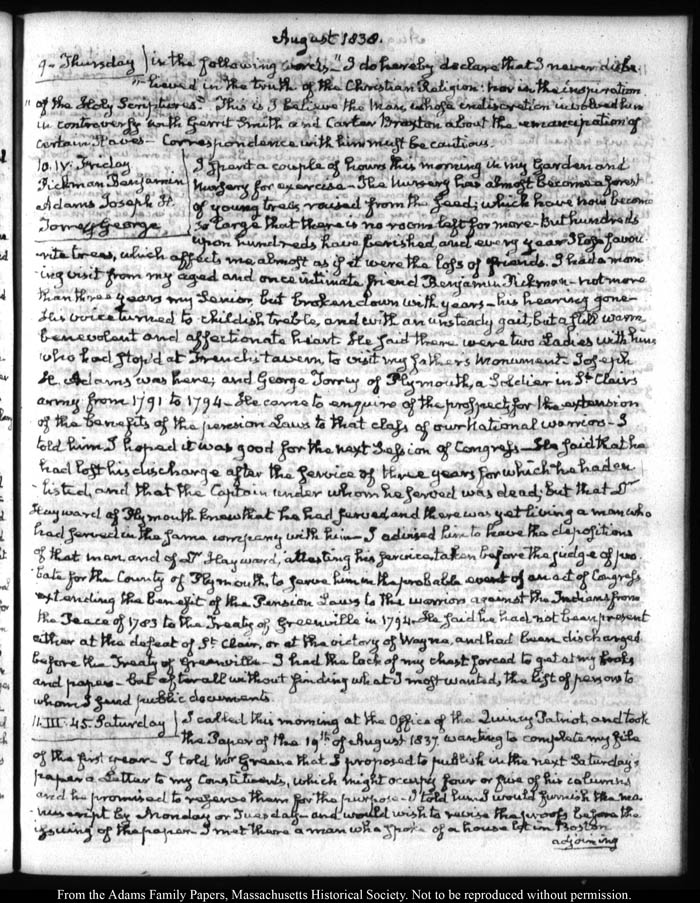 August 1838.
9. Thursday in the following words, "I do hereby declare that I never disbe-
"lieved in the truth of the Christian Religion: nor in the inspiration
"of the Holy Scriptures". This is I believe the man, whose indiscretion involved him
in controversy with Gerrit Smith and Carter Braxton about the emancipation of
certain Slaves— Correspondence with him must be cautious.
10. IV. Friday I spent a couple of hours this morning in my Garden and
Rickman Benjamin Nursery for exercise— The Nursery has almost become a forest
Adams Joseph H. of young trees, raised from the seed; which have now become
Torrey George so large that there is no room left for more. But hundreds
upon hundreds have perished, and every year I lose favou-
rite trees, which affects me almost as if it were the loss of friends. I had a morn-
ing visit from my aged and once intimate friend Benjamin Rickman— not more
than three years my Senior, but broken down with years— his hearing gone—
his voice turned to childish treble, and with an unsteady gait, but a still warm
benevolent and affectionate heart. He said there were two Ladies with him
who had stop'd at French's tavern, to visit my fathers Monument. Joseph
H. Adams was here; and George Torrey of Plymouth, a Soldier in St Clair's
army from 1791 to 1794— He came to enquire of the prospect, for the extension
of the benefits of the pension Laws to that class of our National warriors— I
told him I hoped it was good for the next Session of Congress— He said that he
had lost his discharge after the service of three years for which he had en-
listed, and that the Captain under whom he served was dead; but that Dr
Hayward of Plymouth knew that he had served and there was yet living a man who
had served in the same company with him— I advised him to have the depositions
of that man, and of Dr Hayward, attesting his service taken before the judge of pro-
bate for the County of Plymouth, to serve him in the probable event of an act of Congress
extending the benefit of the Pension Laws to the warriors against the Indians from
the Peace of 1783 to the Treaty of Greenville in 1794. He said he had not been present
either at the defeat of St Clair, or at the victory of Wayne, and had been discharged
before the Treaty of Greenville— I had the lock of my chest forced to get at my books
and papers— but after all without finding what I most wanted, the list of persons to
whom I send public documents.
11. III. 45. Saturday I called this morning at the Office of the Quincy Patriot, and took
the Paper of the 19th of August 1837. wanting to complete my file
of the first year— I told Mr Greene that I proposed to publish in the next Saturday's
paper a Letter to my Constituents, which might occupy four or five of his columns,
and he promised to reserve them for the purpose— I told him I would furnish the ma-
nuscript by Monday or Tuesday— and would wish to revise the proofs before the
issuing of the paper— I met there a man who spoke of a house lot in Boston
adjoining
From the Adams Family Papers, Massachusetts Historical Society. Not to be reproduced without permission.